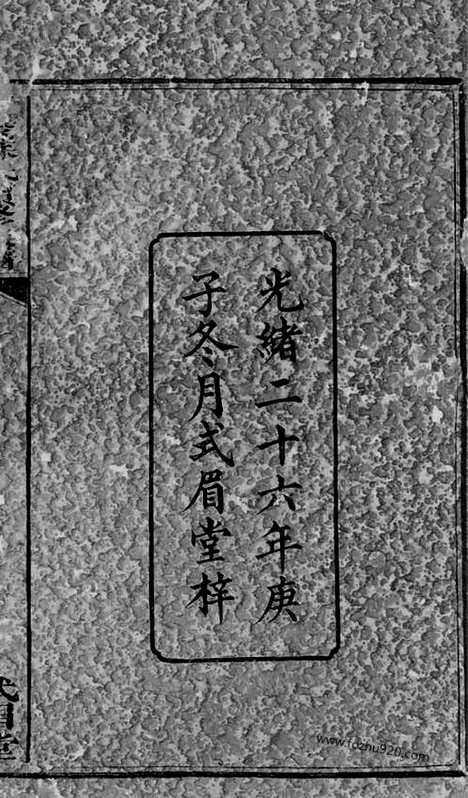 光緒二十六年庚
子冬月式眉堂梓
www.fozhu920.com